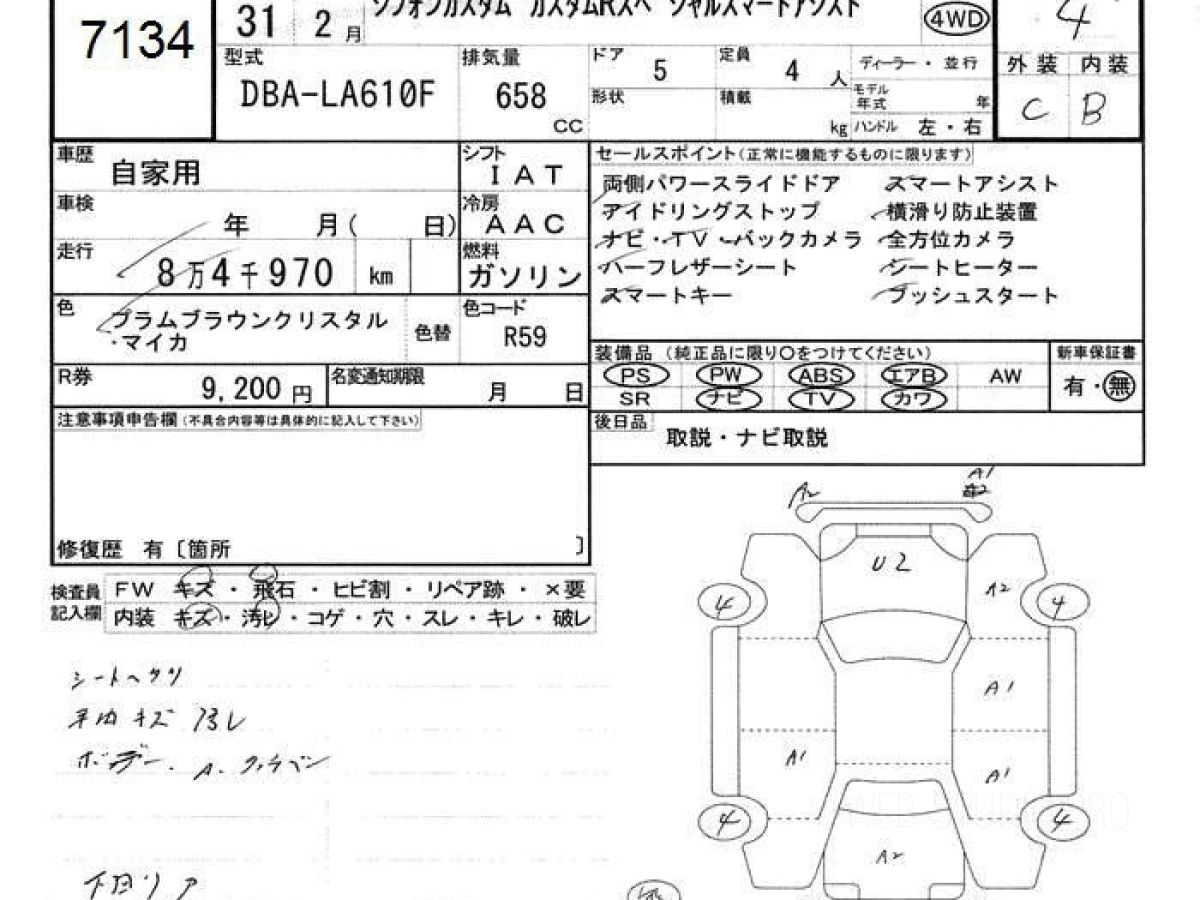 7134
31 2月
シフォンカスタム カスタムRスペシャルスマートアシスト
4WD
4
型式
DBA-LA610F
排気量
658
CC
ドア
5
定員
4 人
形状
積載
kg
ディーラー・並行
モデル年式 年
ハンドル 左・右
外装 内装
C B
車歴
自家用
シフト
IAT
車検
年 月( 日)
冷房
AAC
走行
8万4千970 km
燃料
ガソリン
色
プラムブラウンクリスタル
・マイカ
色替
色コード
R59
R券
9,200 円
名変通知期限
月 日
注意事項申告欄(不具合内容等は具体的に記入して下さい)
修復歴 有〔箇所 〕
セールスポイント(正常に機能するものに限ります)
両側パワースライドドア スマートアシスト
アイドリングストップ 横滑り防止装置
ナビ・TV・バックカメラ 全方位カメラ
ハーフレザーシート シートヒーター
スマートキー プッシュスタート
装備品(純正品に限り○をつけてください)
新車保証書
PS PW ABS エアB AW
SR ナビ TV カワ
有・無
後日品
取説・ナビ取説
検査員記入欄
FW キズ・飛石・ヒビ割・リペア跡・×要
内装 キズ・汚レ・コゲ・穴・スレ・キレ・破レ
シートヘタリ
キズ 汚レ
ボデー. A.
下回リ
A2
A1
U2
A2
4
4
A1
A1
A1
4
4
A2